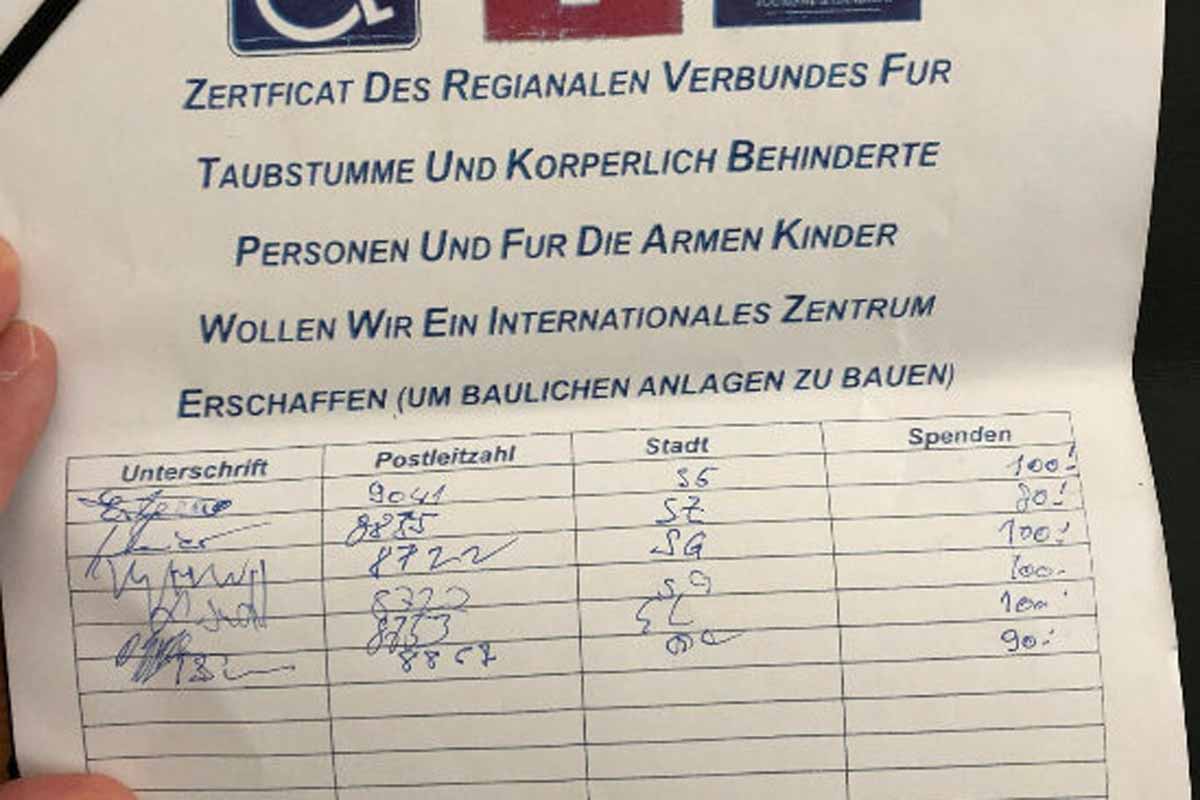 ZERTFICAT DES REGIANALEN VERBUNDES FUR
TAUBSTUMME UND KORPERLICH BEHINDERTE
PERSONEN UND FUR DIE ARMEN KINDER
WOLLEN WIR EIN INTERNATIONALES ZENTRUM
ERSCHAFFEN (UM BAULICHEN ANLAGEN ZU BAUEN)
Unterschrift Postleitzahl Stadt Spenden
9041 SG 100.-
8875 SZ 80.-
8722 SG 100.-
8722 SG 100.-
8753 100.-
8867 90.-